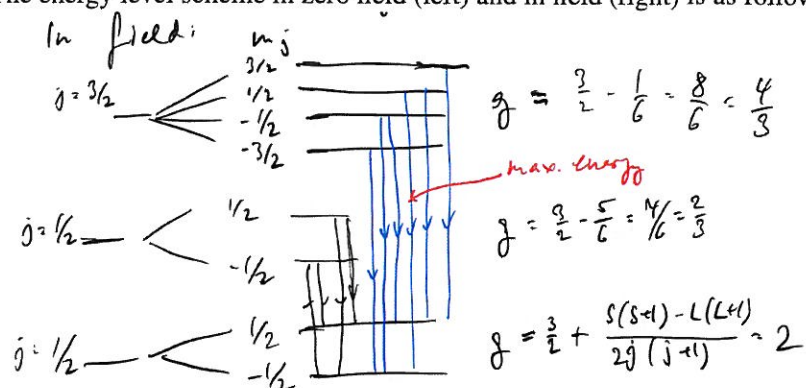 The energy level scheme in zero field (left) and in field (right) is as follow
In field: mj
3/2
j = 3/2 1/2 g = 3/2 - 1/6 = 8/6 = 4/3
-1/2
-3/2
max. energy
j = 1/2 1/2 g = 3/2 - 5/6 = 4/6 = 2/3
-1/2
j = 1/2 1/2 g = 3/2 + S(S+1) - L(L+1) / 2j(j+1) = 2
-1/2